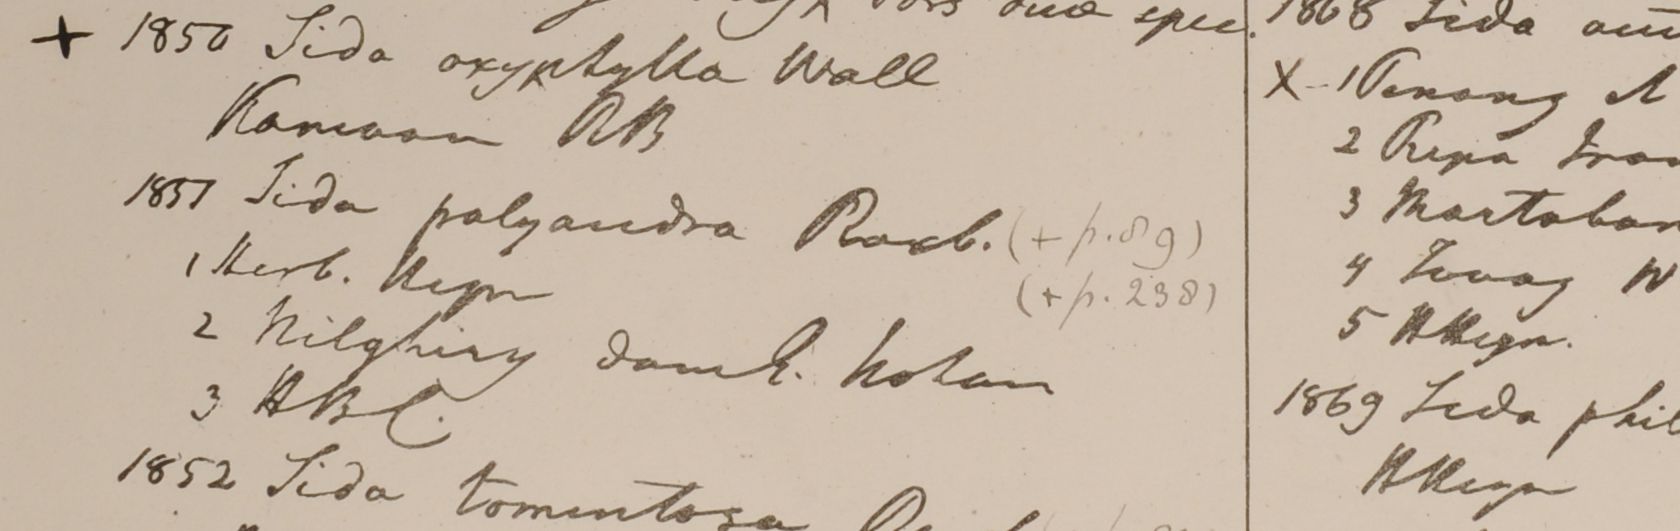 spec.
+ 1850 Sida oxyphylla Wall
Kamaon RB
1851 Sida polyandra Roxb. (+ p. 89)
(+ p. 238)
1 Herb. Heyn
2 Nilghiry
3 HBC.
1852 Sida tomentosa
1868 Sida
X 1 Penang
2
3 Martaban
4 Tavoy W
5 HHeyn.
1869 Sida phil
HHeyn